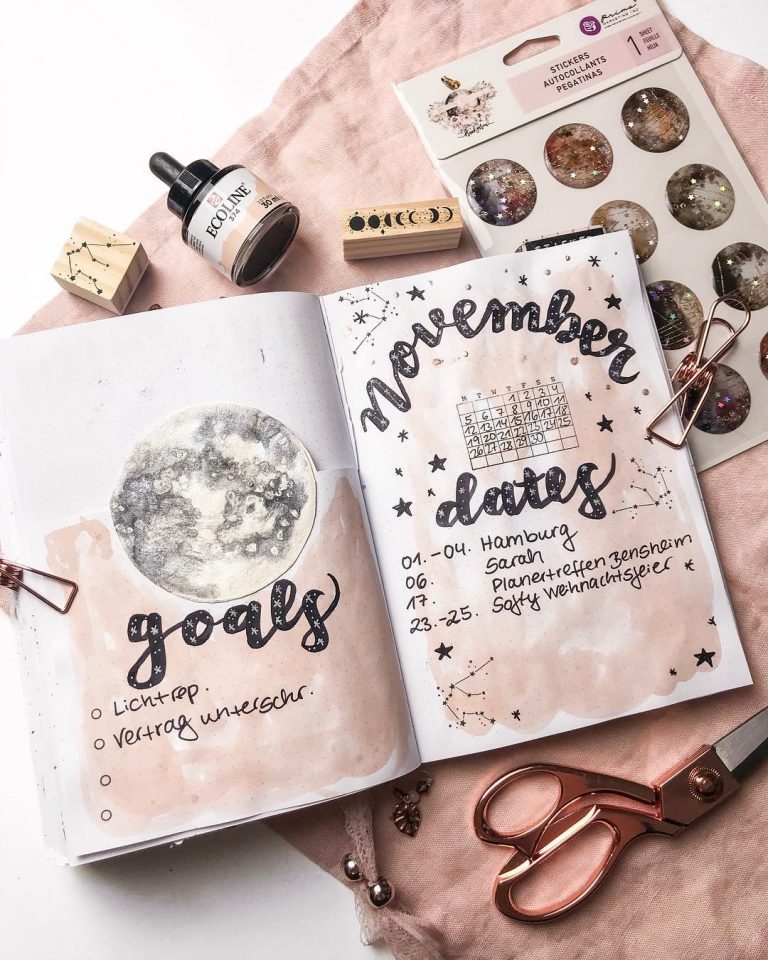 Prima
STICKERS
AUTOCOLLANTS
PEGATINAS
1 SHEET
FEUILLE
HOJA
ECOLINE
374
30 ml
november
M T W T F S S
1 2 3 4
5 6 7 8 9 10 11
12 13 14 15 16 17 18
19 20 21 22 23 24 25
26 27 28 29 30
dates
01.-04. Hamburg
06. Sarah
17. Planertreffen Bensheim
23.-25. Softy Weihnachtsfeier
goals
Lichtrep.
Vertrag unterschr.